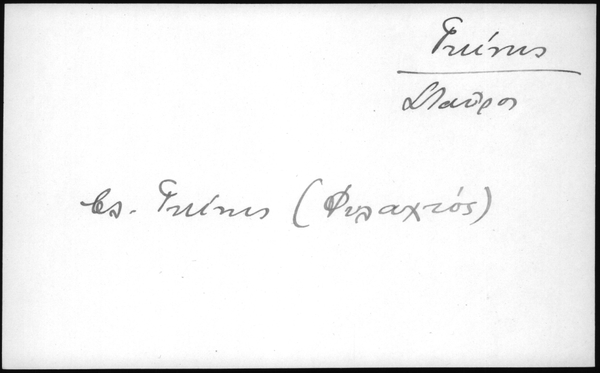 Γκίνης
Σταῦρος
Βλ. Γκίνης (Φυλαχτός)